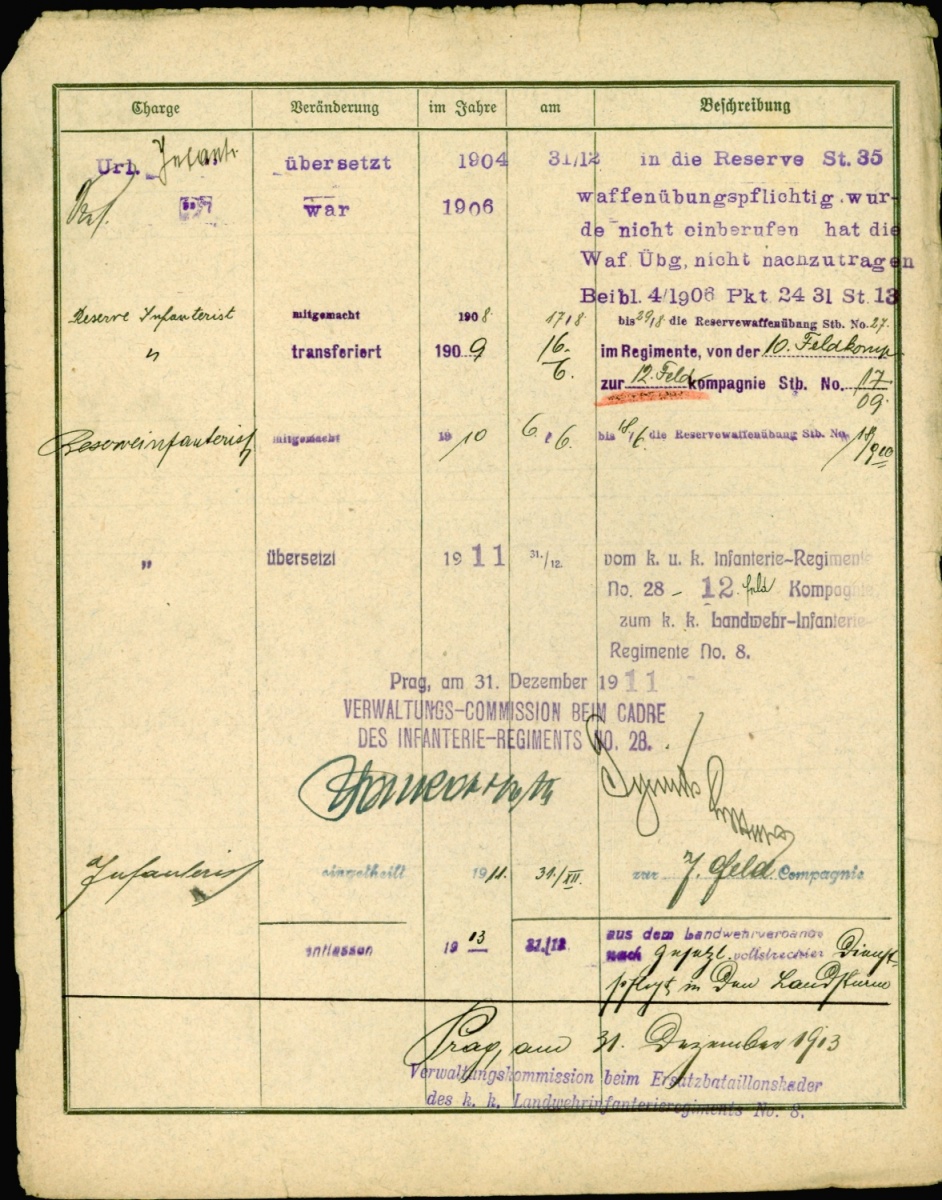 Charge Veränderung im Jahre am Beschreibung
Url. Infant. übersetzt 1904 31/12 in die Reserve St. 35
war 1906 waffenübungspflichtig wur-
de nicht einberufen hat die
Waf Übg, nicht nachzutragen
Beibl. 4/1906 Pkt 24 31 St. 13
Reserve Infanterist mitgemacht 1908 17/8 bis 29/8 die Reservewaffenübung Stb. No. 27.
" transferiert 1909 16. 6. im Regimente, von der 10. Feldkomp
zur 12. Feldkompagnie Stb. No. 17
09.
Reserveinfanterist mitgemacht 1910 6/6. bis 18/6 die Reservewaffenübung Stb. No. 18/910
" übersetzt 1911 31./12. vom k. u. k. Infanterie-Regimente
No. 28 - 12. feld Kompagnie
zum k. k. Landwehr-Infanterie-
Regimente No. 8.
Prag, am 31. Dezember 1911
VERWALTUNGS-COMMISSION BEIM CADRE
DES INFANTERIE-REGIMENTS NO. 28.
Infanterist eingetheilt 1911. 31/XII. zur 7. Feld Compagnie
entlassen 1913 31/12 aus dem Landwehrverbande
nach gesetzl. vollstreckter Dienst-
pflicht in den Landsturm
Prag, am 31. Dezember 1913
Verwaltungskommission beim Ersatzbataillonskader
des k. k. Landwehrinfanterieregiments No. 8.